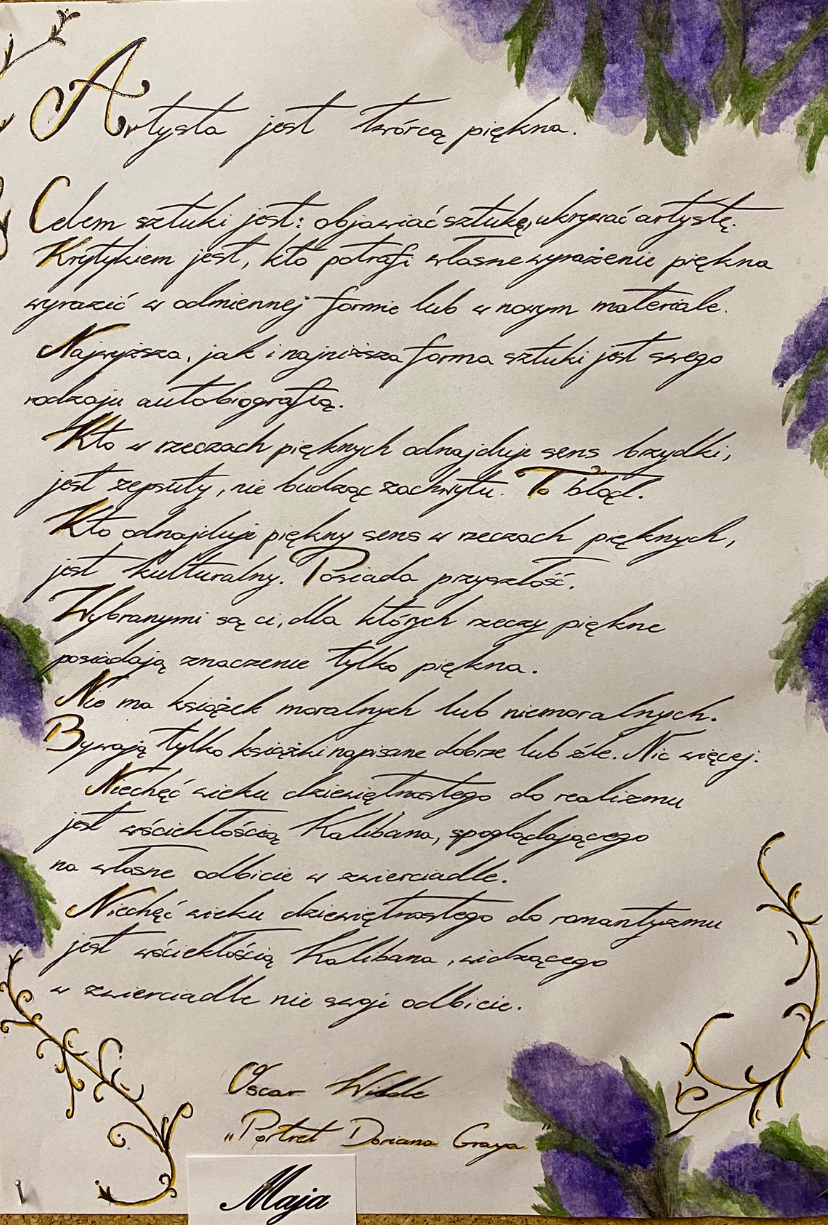 Artysta jest twórcą piękna.
Celem sztuki jest: objawiać sztukę, ukrywać artystę.
Krytykiem jest, kto potrafi własne wyrażenie piękna
wyrazić w odmiennej formie lub w nowym materiale.
Najwyższa, jak i najniższa forma sztuki jest swego
rodzaju autobiografią.
Kto w rzeczach pięknych odnajduje sens brzydki,
jest zepsuty, nie budząc zachwytu. To błąd.
Kto odnajduje piękny sens w rzeczach pięknych,
jest kulturalny. Posiada przyszłość.
Wybranymi są ci, dla których rzeczy piękne
posiadają znaczenie tylko piękna.
Nie ma książek moralnych lub niemoralnych.
Bywają tylko książki napisane dobrze lub źle. Nic więcej.
Niechęć wieku dziewiętnastego do realizmu
jest wściekłością Kalibana, spoglądającego
na własne odbicie w zwierciadle.
Niechęć wieku dziewiętnastego do romantyzmu
jest wściekłością Kalibana, widzącego
w zwierciadle nie swoje odbicie.
Oscar Wilde
„Portret Doriana Graya"
Maja